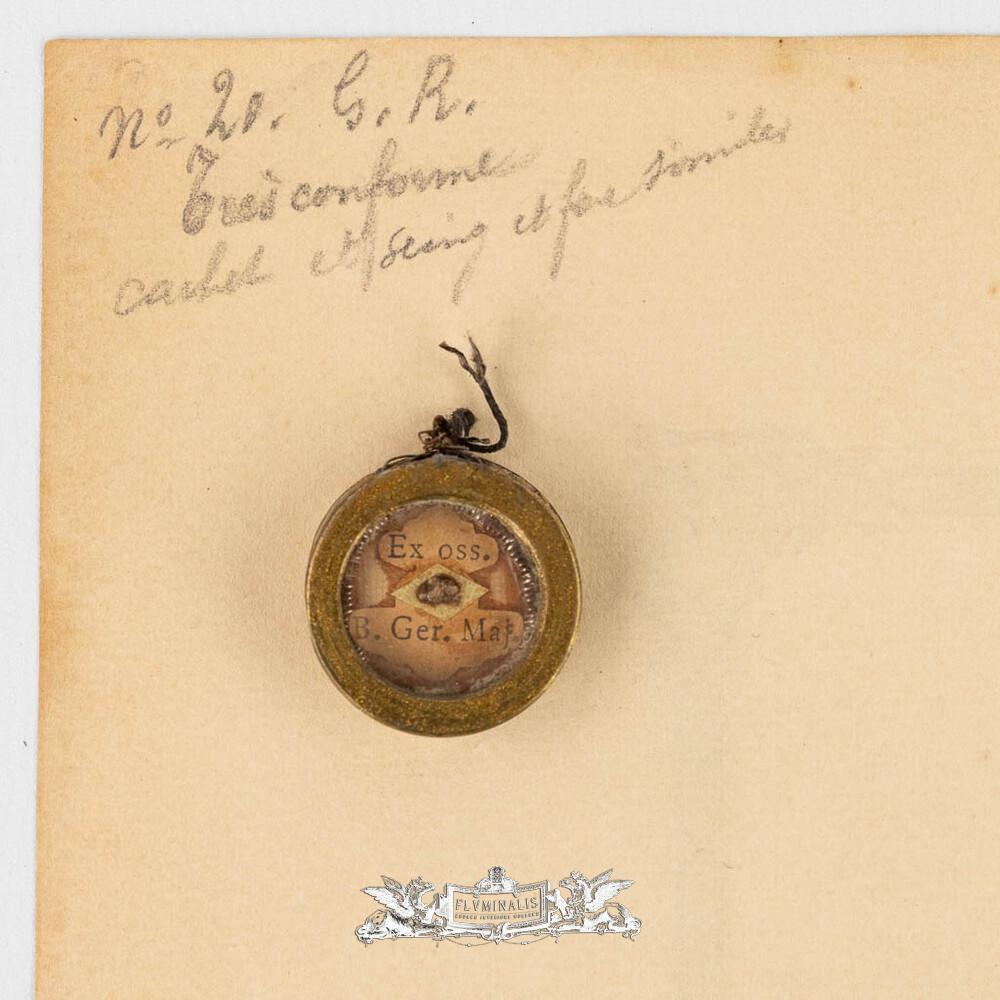 No 20. G. R.
Tres conforme
cachet et seing et fac similer
Ex oss.
B. Ger. Maj.
FLVMINALIS